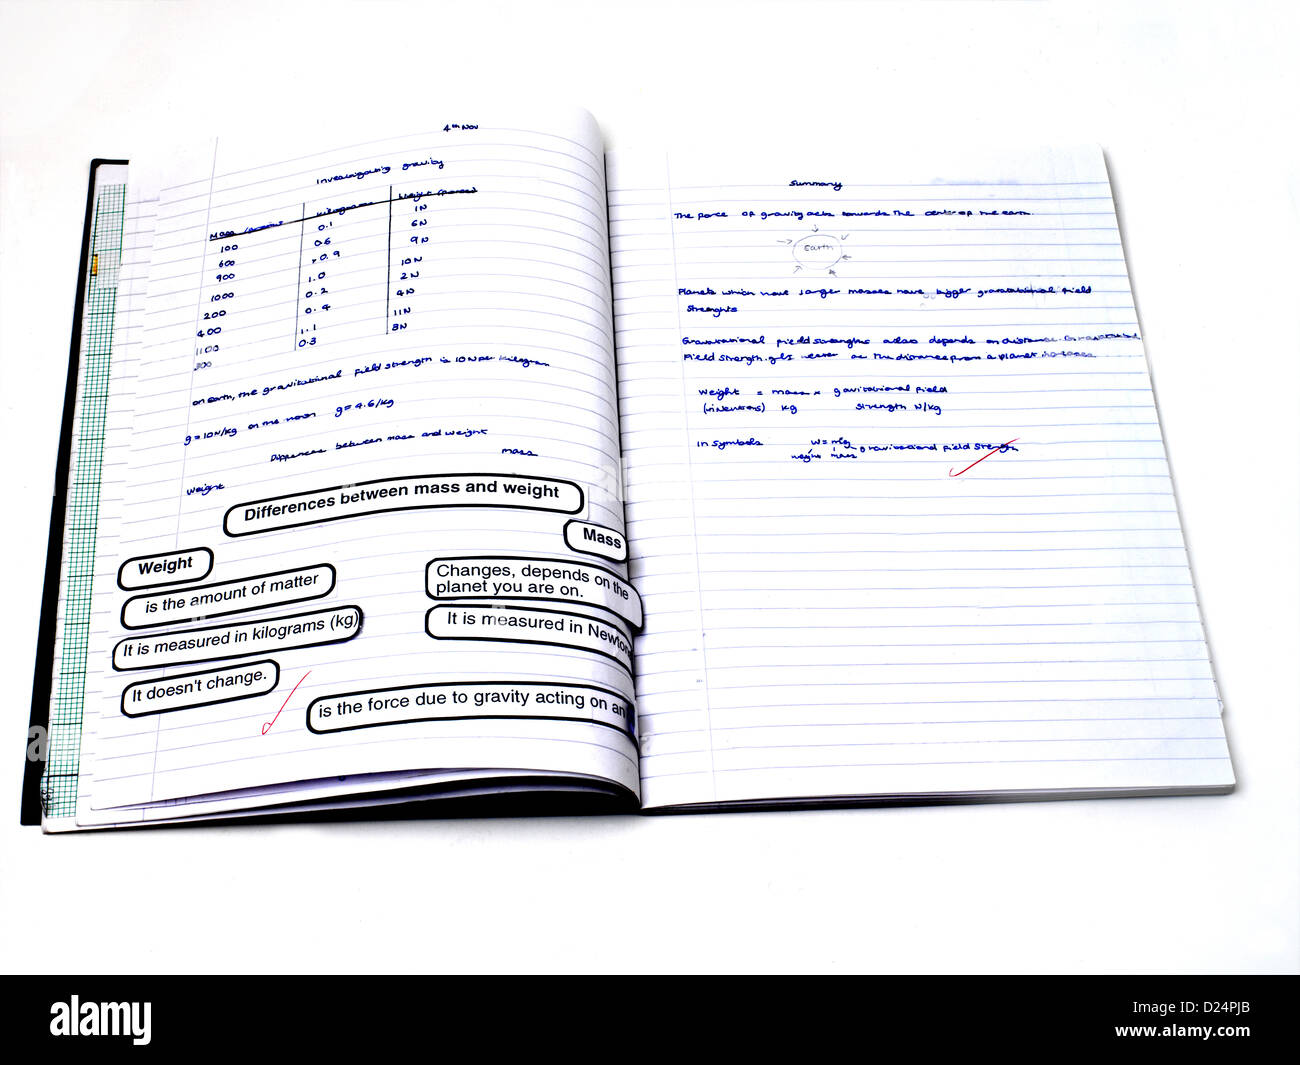 4th Nov
Investigating gravity
Mass Kilograms Weight (Force)
100 0.1 1N
600 0.6 6N
900 0.9 9N
1000 1.0 10N
200 0.2 2N
400 0.4 4N
1100 1.1 11N
300 0.3 3N
on Earth, the gravitational field strength is 10N per kilogram
g = 10N/kg on the moon g = 4.6/kg
Differences between mass and weight
mass
Weight
Differences between mass and weight
Mass
Weight
Changes, depends on the
planet you are on.
is the amount of matter
It is measured in Newton
It is measured in kilograms (kg)
It doesn't change.
is the force due to gravity acting on an
Summary
The force of gravity acts towards the center of the earth.
Earth
Planets which have larger masses have bigger gravitational field
strenghts
Gravitational field strengths also depends on distance.
Field strength gets as the distance from a planet
Weight = mass x gravitational field
(in Newtons) kg strength N/kg
In Symbols W = mg
weight mass gravitational field strength
alamy
Image ID: D24PJB
www.alamy.com